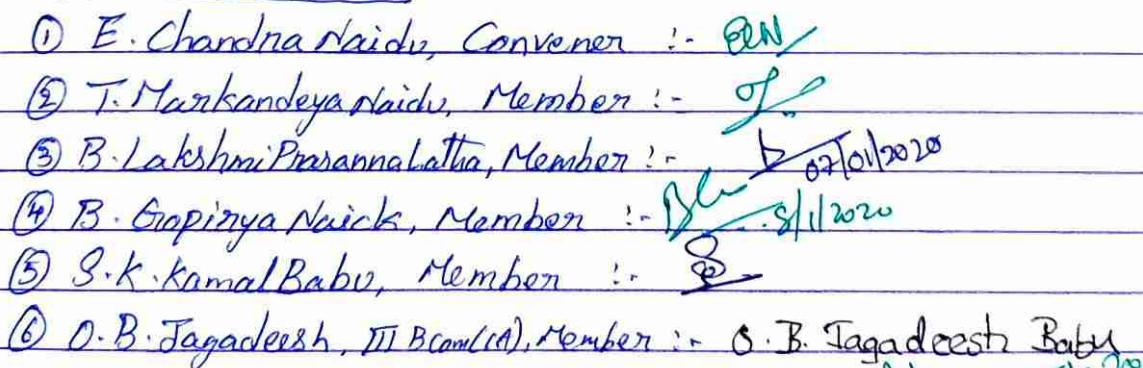 ① E. Chandra Naidu, Convener :-
② T. Markandeya Naidu, Member :-
③ B. Lakshmi Prasanna Latha, Member :- 07/01/2020
④ B. Gopirya Naick, Member :- 8/1/2020
⑤ S.K. Kamal Babu, Member :-
⑥ O.B. Jagadeesh, III BCom(CA), Member :- O.B. Jagadeesh Babu